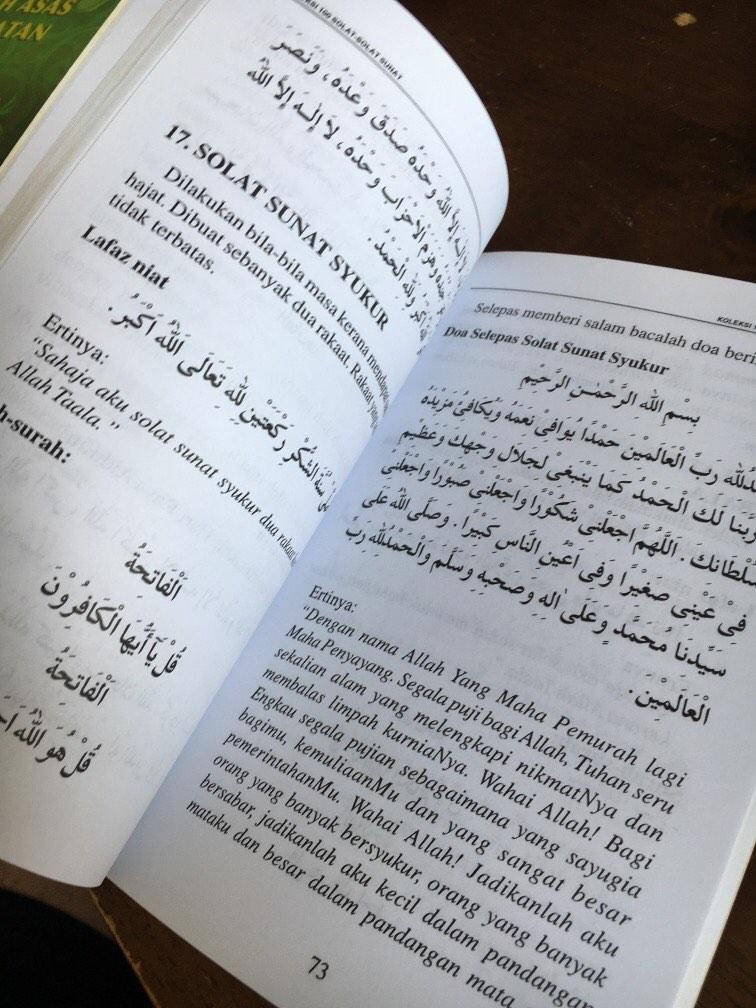 H ASAS
ATAN
KSI 100 SOLAT-SOLAT SUNAT
إِلٰهَ إِلاَّ اللهُ وَحْدَهُ صَدَقَ وَعْدَهُ، وَنَصَرَ
وَهَزَمَ الأَحْزَابَ وَحْدَهُ، لاَ إِلٰهَ إِلاَّ اللهُ
وَلِلّهِ الْحَمْدُ.
17. SOLAT SUNAT SYUKUR
Dilakukan bila-bila masa kerana
hajat. Dibuat sebanyak dua rakaat. Rakaat
tidak terbatas.
Lafaz niat
سُنَّةَ الشُّكْرِ رَكْعَتَيْنِ لِلّهِ تَعَالَى اَللهُ أَكْبَرُ.
Ertinya:
“Sahaja aku solat sunat syukur dua rakaat
Allah Taala.”
h-surah:
اَلْفَاتِحَةُ
قُلْ يَآأَيُّهَا الْكَافِرُوْنَ
اَلْفَاتِحَةُ
قُلْ هُوَ اللهُ
KOLEKSI
Selepas memberi salam bacalah doa beri
Doa Selepas Solat Sunat Syukur
بِسْمِ اللهِ الرَّحْمٰنِ الرَّحِيْمِ
رَبِّ الْعَالَمِيْنَ حَمْدًا يُوَافِيْ نِعَمَهُ وَيُكَافِئُ مَزِيْدَهُ
رَبَّنَا لَكَ الْحَمْدُ كَمَا يَنْبَغِى لِجَلاَلِ وَجْهِكَ وَعَظِيْمِ
سُلْطَانِكَ. اَللَّهُمَّ اجْعَلْنِىْ شَكُوْرًا وَاجْعَلْنِىْ صَبُوْرًا وَاجْعَلْنِىْ
فِىْ عَيْنِىْ صَغِيْرًا وَفِىْ أَعْيُنِ النَّاسِ كَبِيْرًا. وَصَلَّى اللهُ عَلَى
سَيِّدِنَا مُحَمَّدٍ وَعَلَى اٰلِهِ وَصَحْبِهِ وَسَلَّمَ وَالْحَمْدُلِلّهِ رَبِّ
الْعَالَمِيْنَ.
Ertinya:
“Dengan nama Allah Yang Maha Pemurah lagi
Maha Penyayang. Segala puji bagi Allah, Tuhan seru
sekalian alam yang melengkapi nikmatNya dan
membalas limpah kurniaNya. Wahai Allah! Bagi
Engkau segala pujian sebagaimana yang sayugia
bagimu, kemuliaanMu dan yang sangat besar
pemerintahanMu. Wahai Allah! Jadikanlah aku
orang yang banyak bersyukur, orang yang banyak
bersabar, jadikanlah aku kecil dalam pandangan
mataku dan besar dalam pandangan mata
73